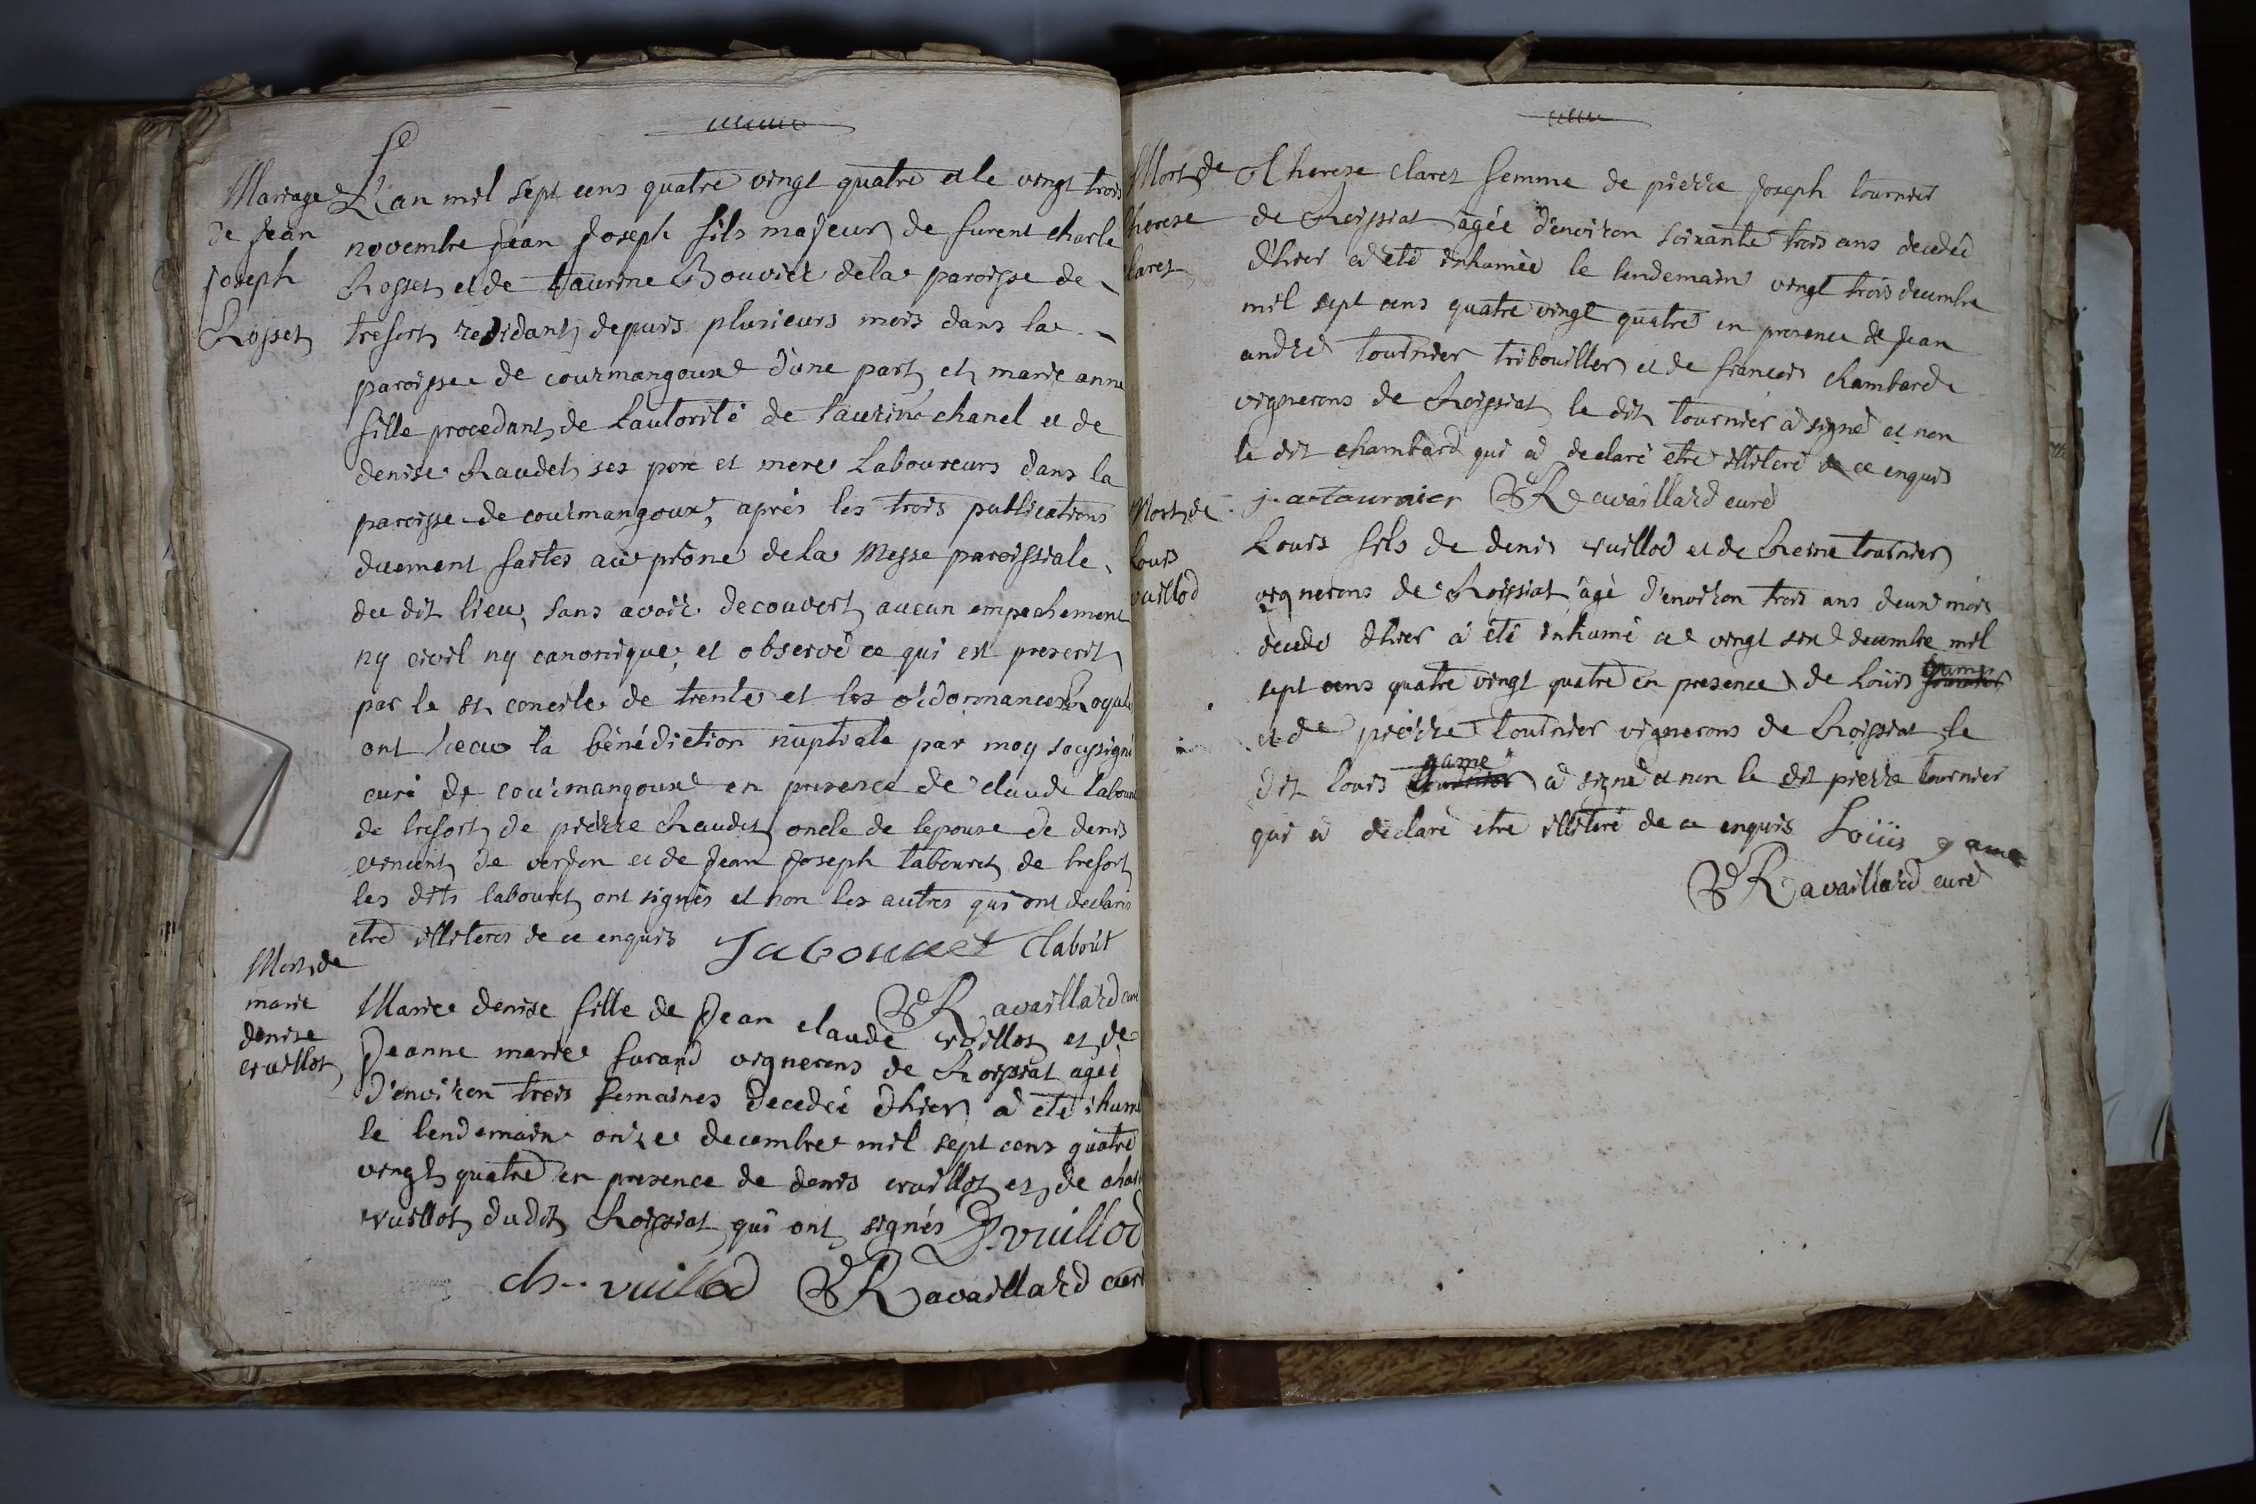 Mariage
de Jean
Joseph
Rosset
L'an mil sept cens quatre vingt quatre et le vingt trois
novembre Jean Joseph fils majeur de furent charle
Rosset et de taurine Bouvier dela paroisse de
tresort residant depuis plusieurs mois dans la
paroisse de courmangoux d'une part et marie anne
fille procedant de l'autorité de taurin chanel et de
denise Raudet ses pere et mere Laboureurs dans la
paroisse de courmangoux, aprés les trois publications
duement faites au prône dela Messe paroissiale
du dit lieu, sans avoir decouvert aucun empechement
ny civil ny canonique, et observé ce qui est prescrit
par le st concile de trente et les ordonnances Royale
ont receu la bénédiction nuptiale par moy soussigné
curé de courmangoux en presence de claude labouret
de tresort de pierre Raudet oncle de lepouse de denis
vincent de verjon et de Jean Joseph labouret de tresort
les dits labouret ont signés et non les autres qui ont declarés
etre illiteres de ce enquis Labouret Clabout
Ravaillard curé
Mort de
marie
denise
vuillot
Marie denise fille de Jean claude vuillot et de
Jeanne marie furand vignerons de Roissiat agée
d'environ trois semaines decedée d'hier a été ihumé
le lendemain onze decembre mil sept cens quatre
vingt quatre en presence de denis vuillot et de char
vuillot dudit Roissiat qui ont signés D. vuillod
ch.. vuillod Ravaillard curé
Mort de
therese
claret
therese claret femme de pierre Joseph tournier
de Roissiat agée d'environ soixante trois ans decedée
d'hier a été inhumée le lendemain vingt trois decembre
mil sept cens quatre vingt quatre en presence de Jean
andre tournier tribouiller et de francois chambard
vignerons de Roissiat le dit tournier a signé et non
le dit chambard qui a declaré etre illiteré de ce enquis
j. a tournier Ravaillard curé
Mort de
Louis
vuillod
Louis fils de denis vuillod et de Reine tournier
vignerons de Roissiat agé d'environ trois ans deux mois
decedé d'hier a été inhumé ce vingt six decembre mil
sept cens quatre vingt quatre en presence de Louis game
et de pierre tournier vignerons de Roissiat le
dit Louis game a signé et non le dit pierre tournier
qui a declaré etre illiteré de ce enquis Loüis game
Ravaillard curé